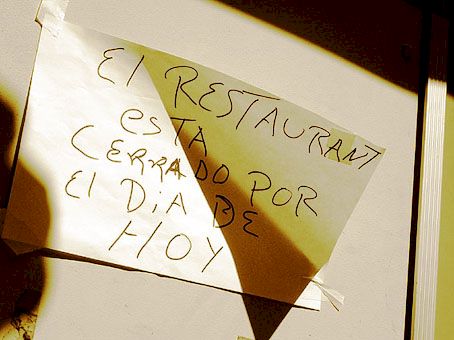 El RESTAURANT
esTA
CERRADO POR
El DiA DE
HOY